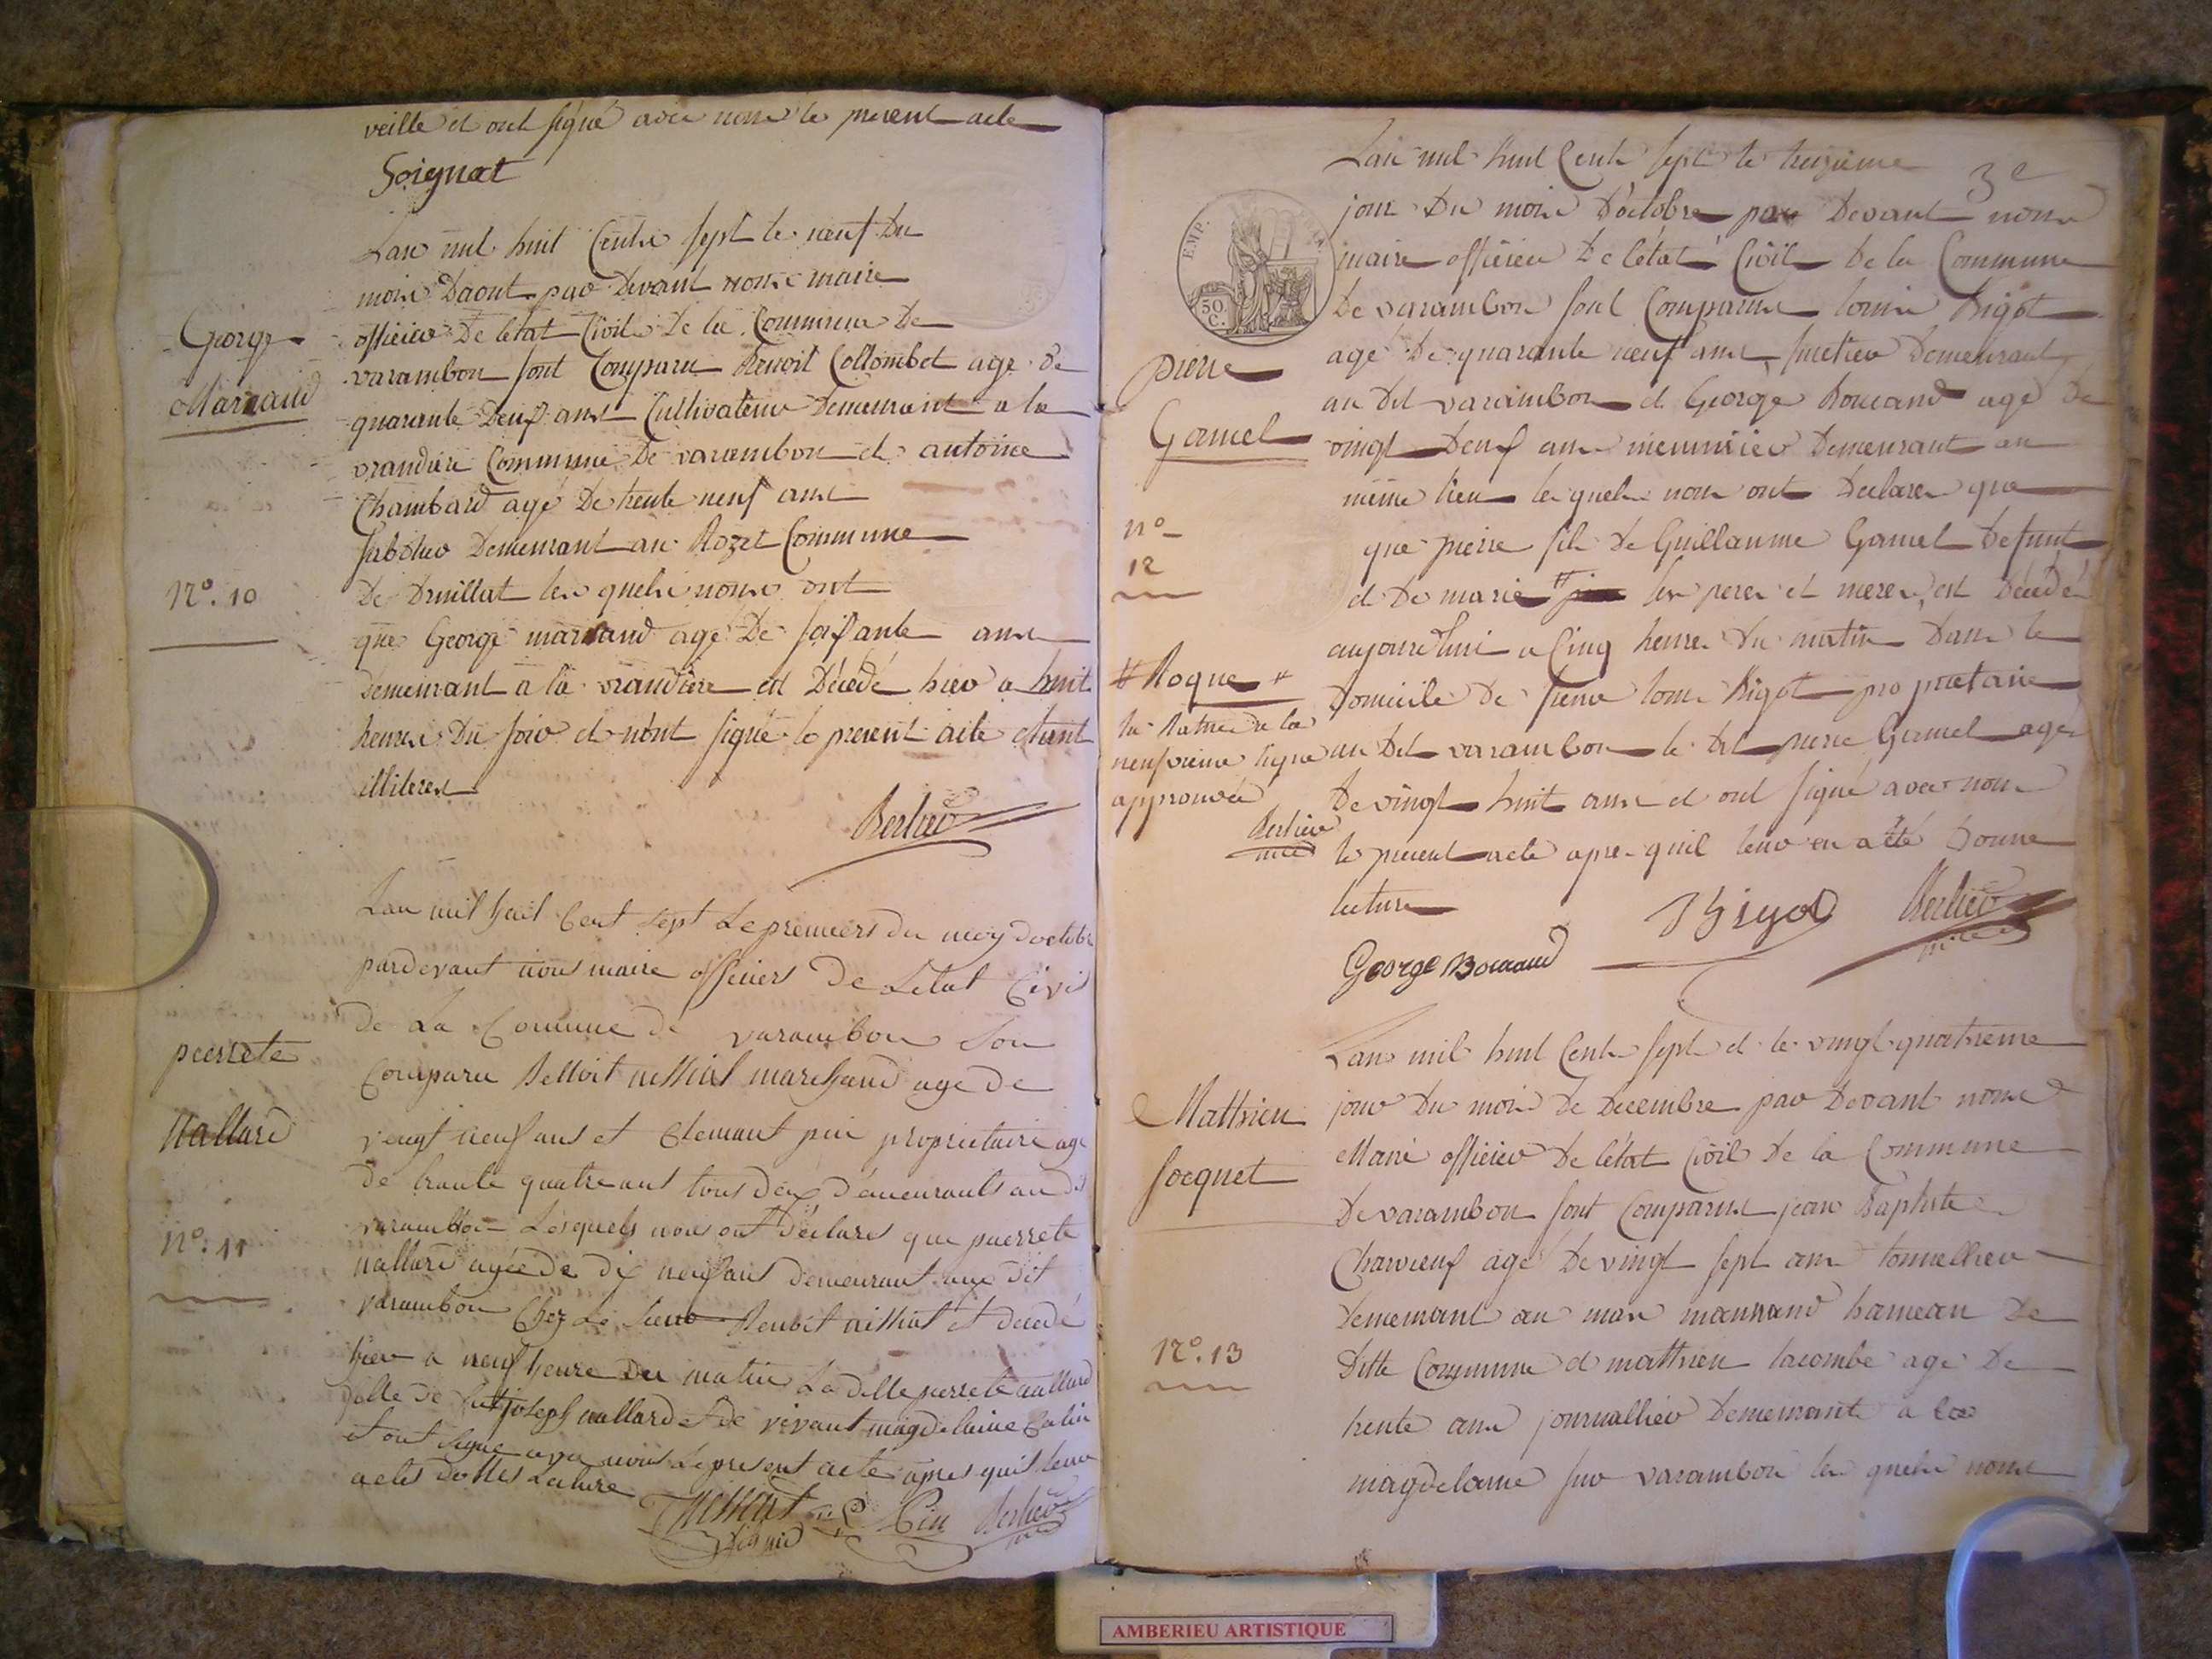 veille et ont signé avec nous le present acte
Soignat
Lan mil huit Cents sept le neuf du
mois Daout par Devant nous maire
officier De letat Civil De la Commune De
varambon sont Comparu Benoit Collombet age De
quarante Deux ans Cultivateur Demeurant a la
vrandiere Commune De varambon et antoine
Chambard agé De trente neuf ans
sabotier Demeurant au Rozet Commune
De Druillat les quels nous ont
que George marnand age De soisante ans
Demeurant a la vrandiere est Décédé hier a huit
heures Du soir et n'ont signé le present acte etant
illiteres
Berlier
George
Marnand
N°. 10
Lan mil huit Cent sept Le premiers du moy doctobre
pardevant nous maire officiers De Letat Civil
De La Commune de varambon Son
Comparu Benoit nithiat marchand age De
vengt neuf ans et Clemant pin proprietaire age
De trante quatre ans tous deux demeurants au dit
varambon Lesquels nous ont déclarés que pierrete
nallard agée De dix neuf ans demeurant aux dit
varambon Chez Le sieur Benoit nithiat et décedé
hier a neuf heure Du matin La ditte pierrete nallard
fille de fut joseph nallard et de vivant magdelaine
et ont signe avec nous Le present acte apres quil leur
a etes dottes Lecture
Pin Berlier
pierrete
Nallard
N°. 11
3e
Lan mil huit Cents sept le treizieme
jour Du mois D'octobre par Devant nous
maire officier De l'état Civil De la Commune
De varambon sont Comparus louis Bigot
agé De quarante neuf ans Demeurant
au Dit varambon et George Bouvand agé De
vingt Deux ans menuisier Demeurant au
même lieu les quels nous ont Déclarer que
que pierre fils De Guillaume Gamel Defunt
et De marie # ses peres et meres est Décédé
aujourd'hui a Cinq heures Du matin Dans le
Domicile De sieur louis Bigot proprietaire
au Dit varambon le Dit pierre Gamel agé
De vingt huit ans et ont signé avec nous
le present acte apres quil leur en a été Donné
lecture
Bigot Berlier
George Bouvand
EMP.
50
C.
pierre
Gamel
n°
12
# Roque #
la rature de la
neufvieme ligne
approuvée
Berlier
Lan mil huit Cents sept et le vingt quatrieme
jour Du mois De Decembre par Devant nous
Maire officier De l'état Civil De la Commune
De varambon sont Comparus jean Baptiste
Charneuf agé De vingt sept ans tonnellier
Demeurant au mas maurand hameau De
Ditte Commune et matthieu lacombe age De
trente ans journallier Demeurant a la
magdelaine sur varambon les quels nous
Matthieu
Jocquet
N°. 13
AMBERIEU ARTISTIQUE